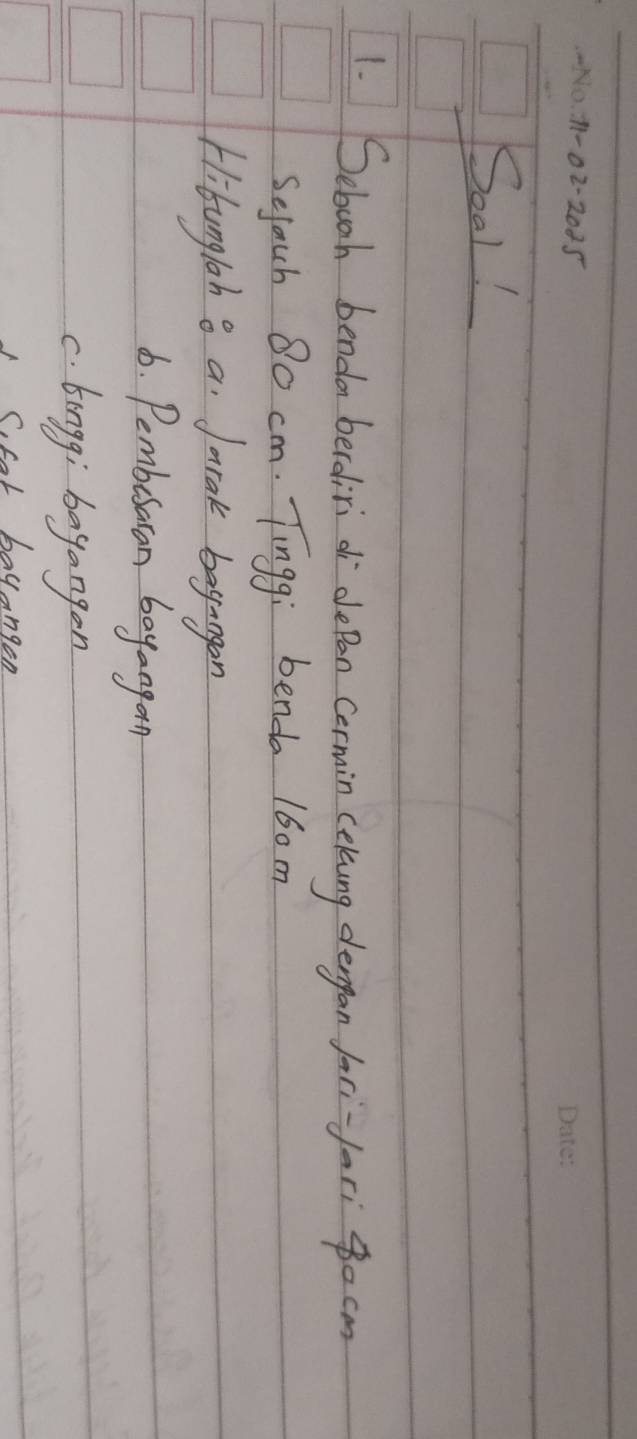 No. 11-02-2025
Date:
Soal!
1. Sebuah benda berdiri di depan cermin cekung dengan jari-jari cm
sejauh 80 cm. Tinggi benda 160 m
Hitunglah : a. Jarak bayangan
b. Pembesaran bayangan
c. tinggi bayangan
d Sifat bayangan